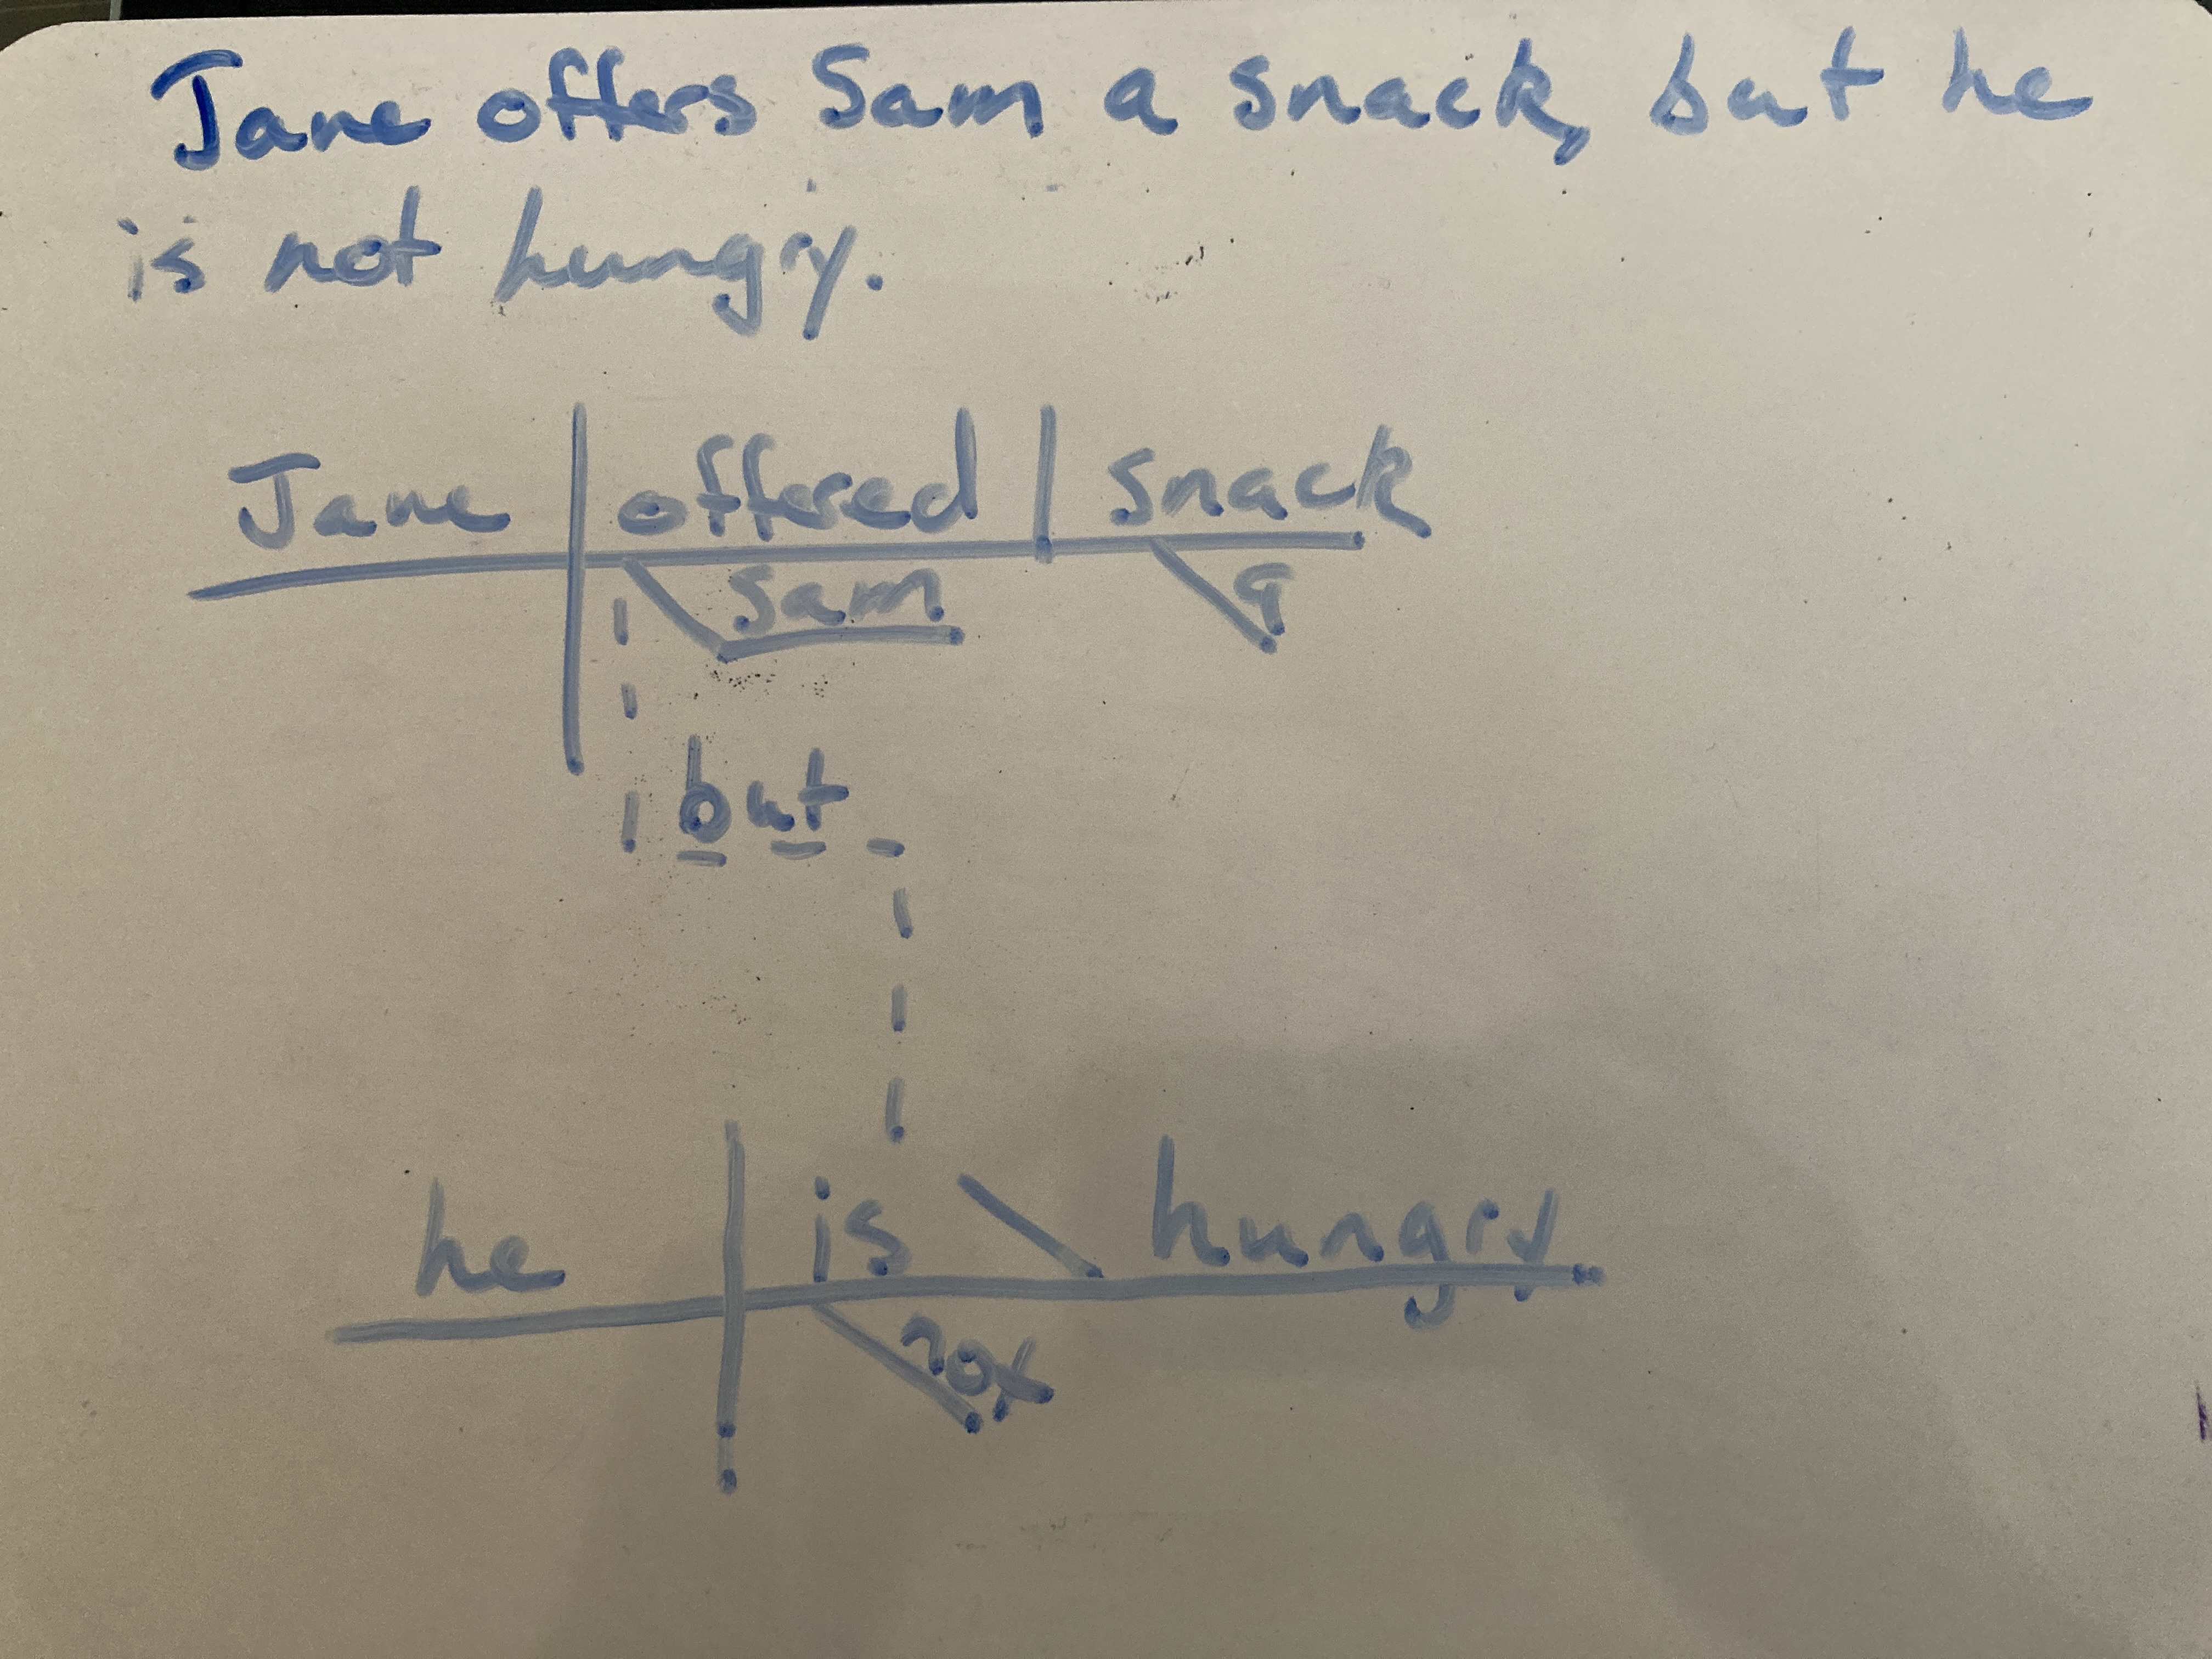 Jane offers Sam a snack, but he
is not hungry.
Jane offered snack
Sam a
but
he is hungry
not